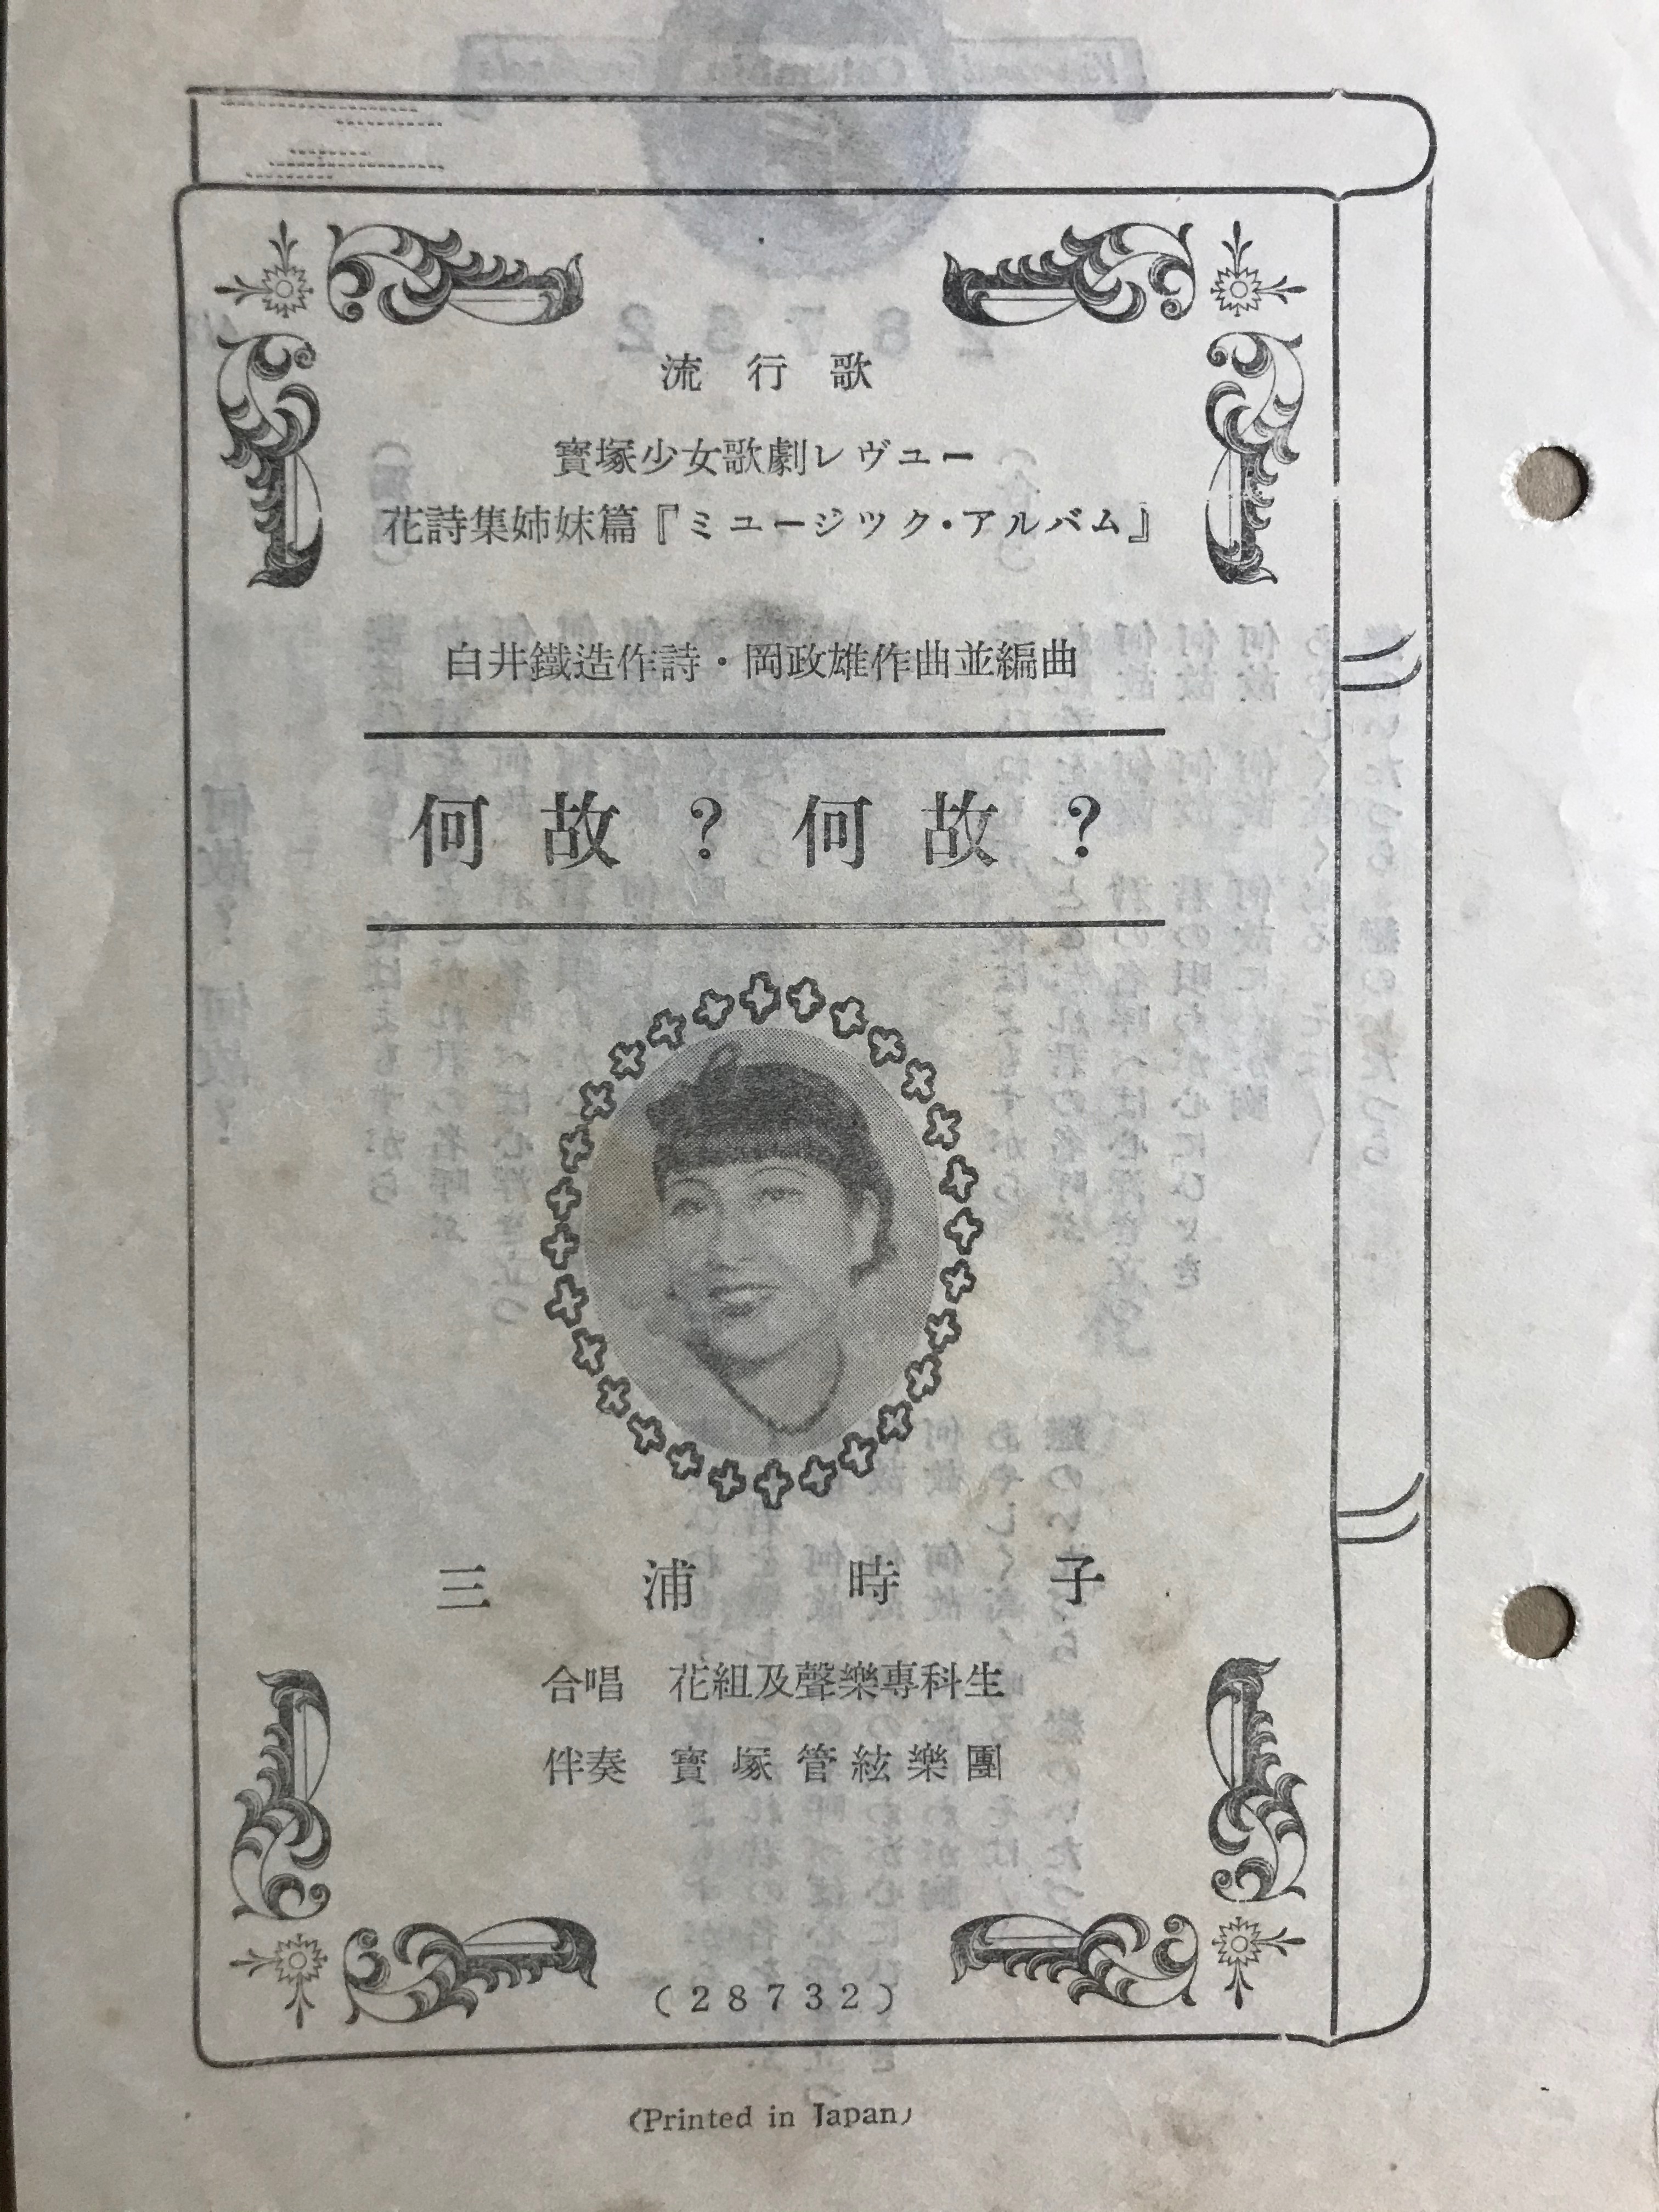 流行歌
寶塚少女歌劇レヴユー
花詩集姉妹篇『ミユージツク・アルバム』
白井鐵造作詩・岡政雄作曲並編曲
何故？何故？
三浦時子
合唱 花組及聲樂專科生
伴奏 寶塚管絃樂團
(28732)
(Printed in Japan)